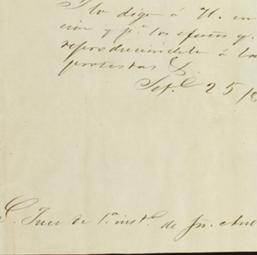 lo digo á V. en
cion y pa. los efectos q.
reproduciendole á la
protestas
Set.e 25/
S. Juez de 1a. insta. de